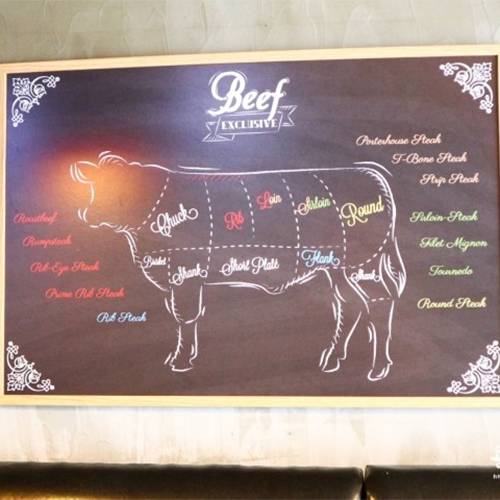 Beef
EXCLUSIVE
Porterhouse Steak
T-Bone Steak
Strip Steak
Chuck
Rib
Loin
Sirloin
Round
Roastbeef
Rumpsteak
Rib-Eye Steak
Prime Rib Steak
Rib Steak
Brisket
Shank
Short Plate
Flank
Shank
Sirloin-Steak
Filet Mignon
Tournedo
Round Steak